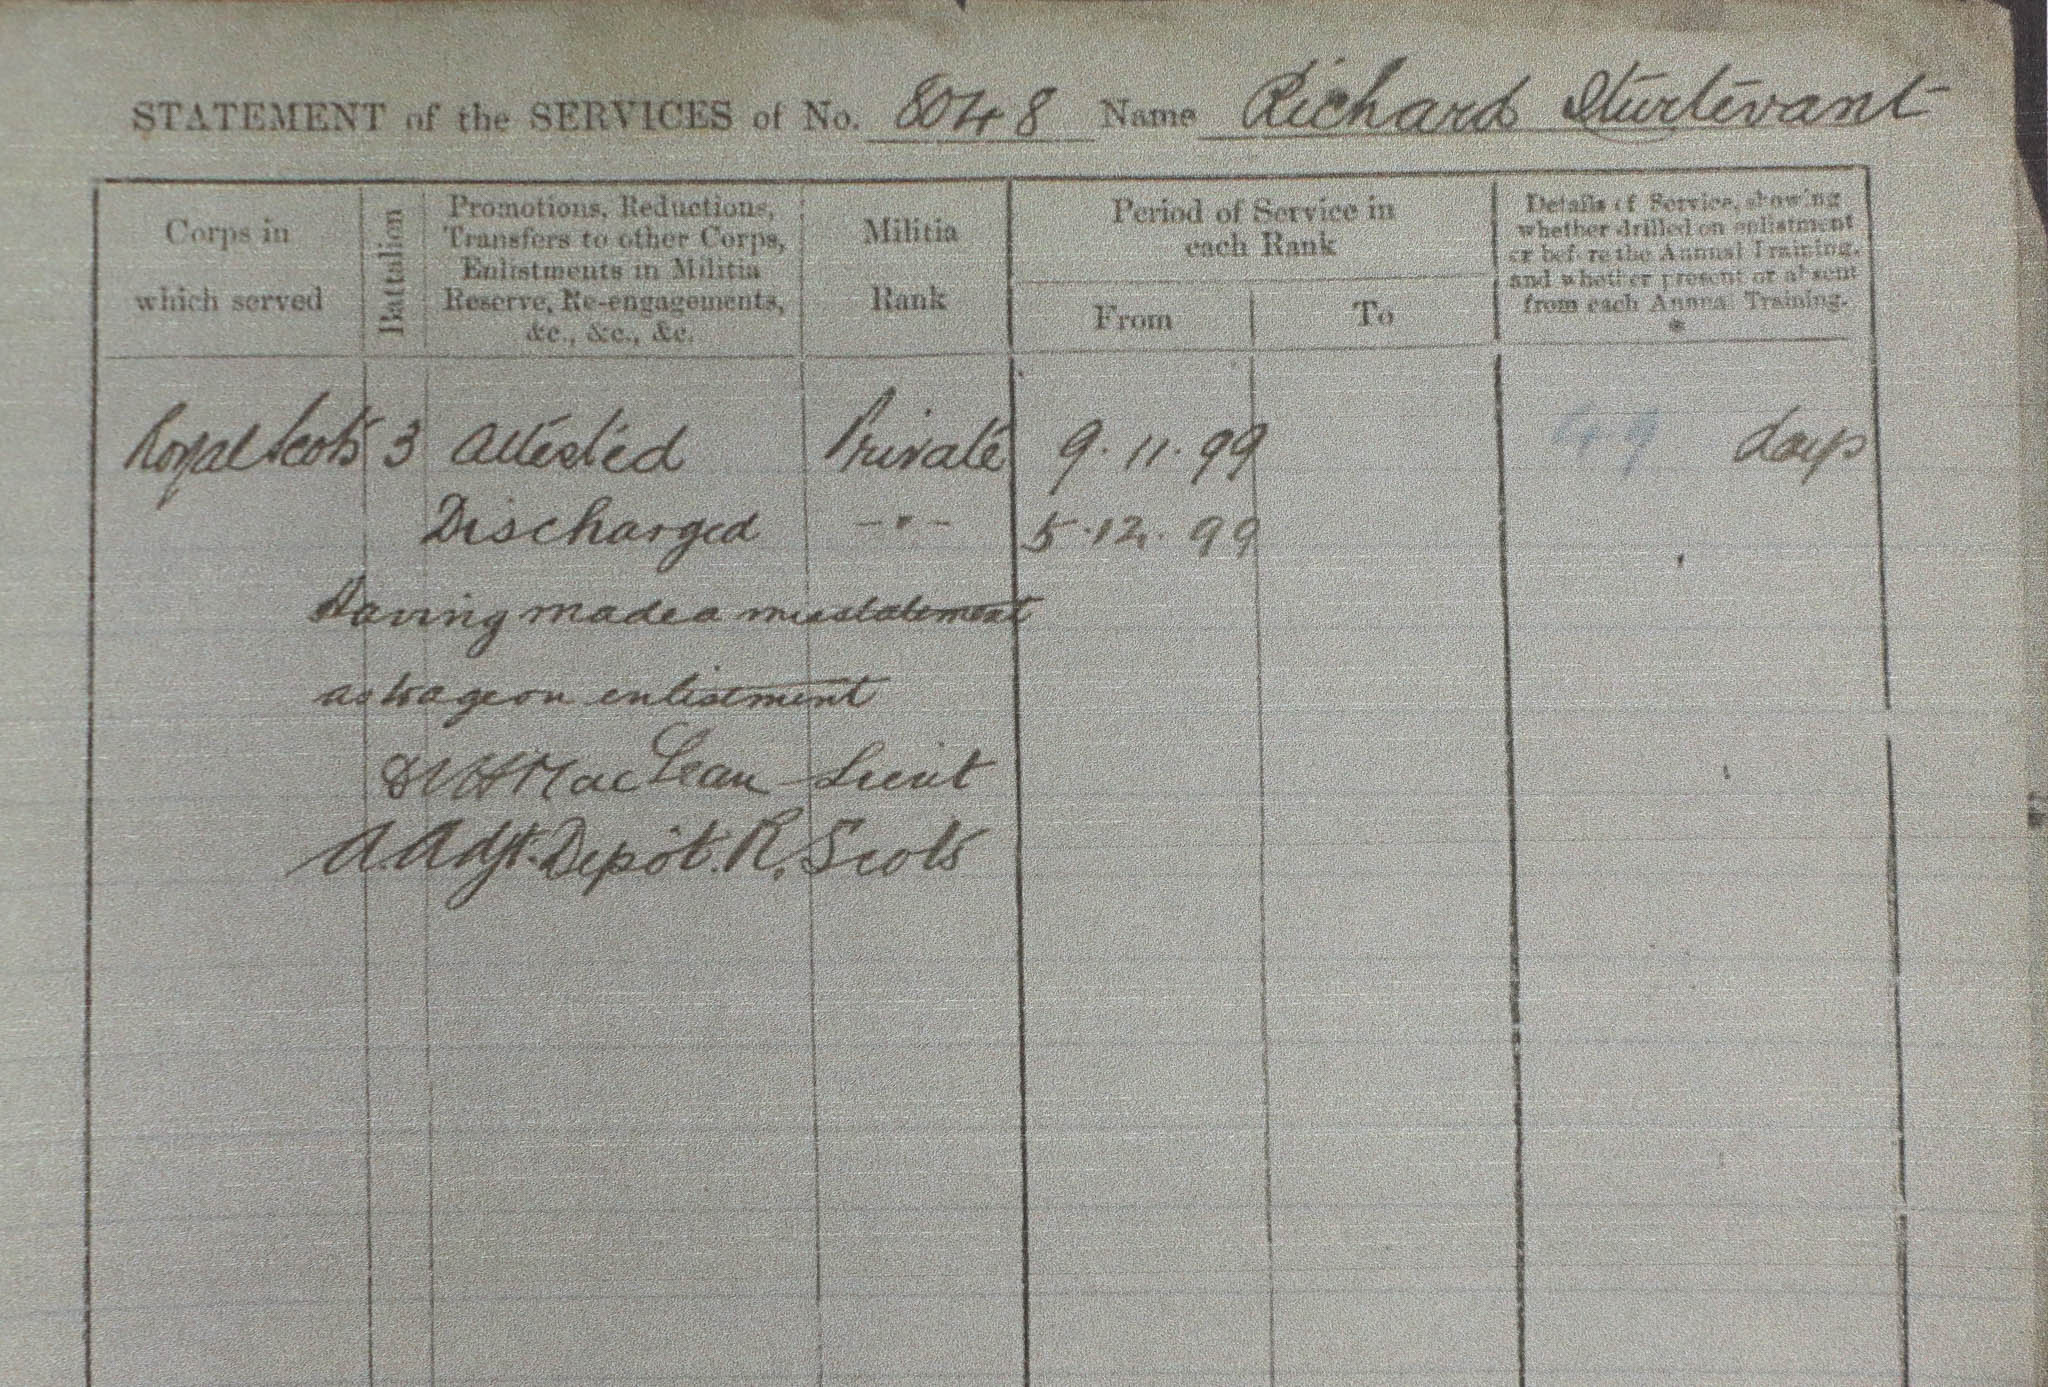 STATEMENT of the SERVICES of No. 8048 Name Richard Sturtevant
Corps in
which served
Battalion
Promotions, Reductions,
Transfers to other Corps,
Enlistments in Militia
Reserve, Re-engagements,
&c., &c., &c.
Militia
Rank
Period of Service in
each Rank
From
To
Details of Service, showing
whether drilled on enlistment
or before the Annual Training,
and whether present or absent
from each Annual Training.
*
Royal Scots 3 Attested Private 9.11.99 49 days
Discharged -"- 5.12.99
Having made a misstatement
as to age on enlistment
MacLean Lieut
A. Adjt. Depôt. R. Scots